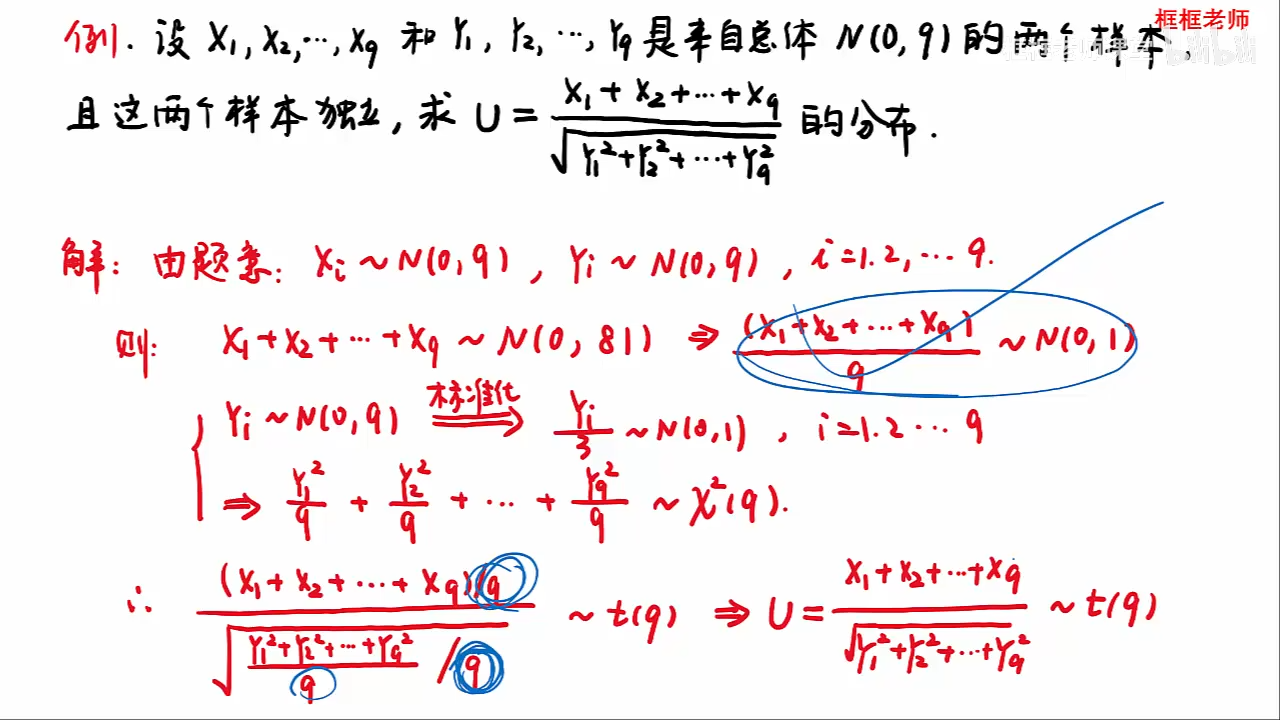 框框老师
例. 设 X₁, X₂, ⋯, X₉ 和 Y₁, Y₂, ⋯, Y₉ 是来自总体 N(0, 9) 的两个样本。
bilibili
且这两个样本独立, 求 U = (X₁ + X₂ + ⋯ + X₉) / √(Y₁² + Y₂² + ⋯ + Y₉²) 的分布.
解: 由题意: Xᵢ ~ N(0, 9), Yᵢ ~ N(0, 9), i = 1. 2, ⋯ 9.
则: X₁ + X₂ + ⋯ + X₉ ~ N(0, 81) ⇒ (X₁ + X₂ + ⋯ + X₉) / 9 ~ N(0, 1)
Yᵢ ~ N(0, 9) 标准化 ⇒ Yᵢ/3 ~ N(0, 1), i = 1. 2 ⋯ 9
⇒ Y₁²/9 + Y₂²/9 + ⋯ + Y₉²/9 ~ χ²(9).
∴ (X₁ + X₂ + ⋯ + X₉)/9 / √((Y₁² + Y₂² + ⋯ + Y₉²)/9 / 9) ~ t(9) ⇒ U = (X₁ + X₂ + ⋯ + X₉) / √(Y₁² + Y₂² + ⋯ + Y₉²) ~ t(9)